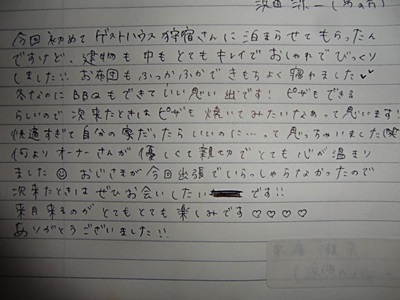 今回初めてゲストハウス狩宿さんに泊まらせてもらったん
ですけど、建物も中もとてもキレイでおしゃれでびっくり
しました!! お布団もふっかふかできもちよく寝れました✓
冬なのにBBQもできていい思い出です! ピザもできる
らしいので次来たときはピザも焼いてみたいなぁって思います!
快適すぎて自分の家だったらいいのに…って思っちゃいました(笑)
何よりオーナーさんが優しくて親切でとても心が温まり
ました☺ おじさまが今回出張でいらっしゃらなかったので
次来たときはぜひお会いしたいです!!
来月来るのがとてもとても楽しみです♡♡♡♡
ありがとうございました!!